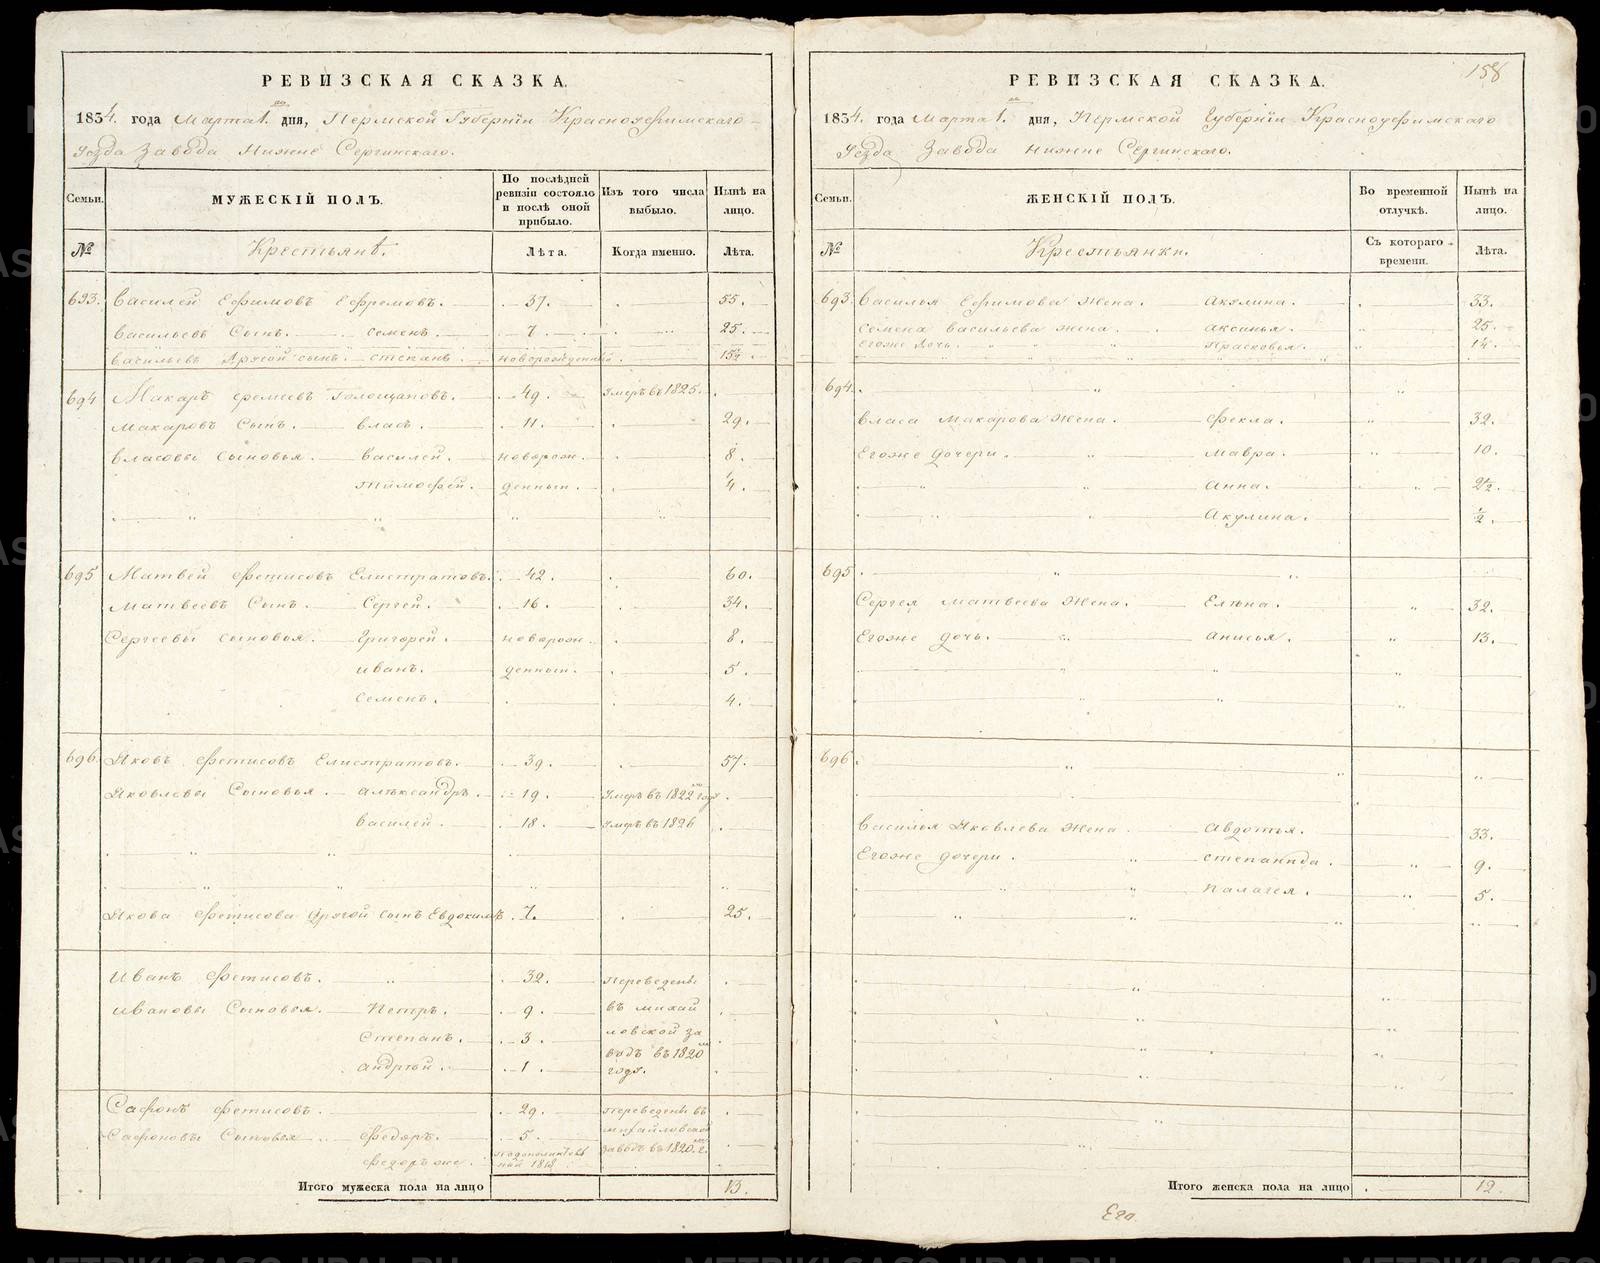 РЕВИЗСКАЯ СКАЗКА.
1834. года Марта 1. го дня, Пермской Губернiи Красноуфимскаго
Уезда Завода Нижне Сергинскаго.
Семьи. МУЖЕСКIЙ ПОЛЪ. По послѣдней ревизiи состояло и послѣ оной прибыло. Изъ того числа выбыло. Нынѣ на лицо.
№ Крестьянѣ. Лѣта. Когда именно. Лѣта.
693. Василей Ефимовъ Ефремовъ. 37. 55.
Васильевъ Сынъ. Семенъ. 7. 25.
Васильевъ Другой сынъ. Степанъ. новорожденный. 15½.
694 Макаръ Еремеевъ Голощаповъ. 49. Умеръ въ 1825.
Макаровъ Сынъ. Власъ. 11. 29.
Власовы Сыновья. Василей. новорож- 8.
Тимофей. денныи. 4.
695 Матвей Фетисовъ Елистратовъ. 42. 60.
Матвеевъ Сынъ. Сергей. 16. 34.
Сергеевы Сыновья. Григорей. новорож- 8.
Иванъ. денныи. 5
Семенъ. 4.
696. Яковъ Фетисовъ Елистратовъ. 39. 57.
Яковлевы Сыновья. Александръ. 19. Умеръ въ 1822 мъ году
Василей. 18. Умеръ въ 1826
Якова Фетисова Другой сынъ Евдокимъ 7. 25.
Иванъ Фетисовъ. 32. Переведены
Ивановы Сыновья. Петръ. 9. въ михай
Степанъ. 3. ловской за
Андрѣй. 1. водъ въ 1820 мъ
годѣ.
Сафонъ Фетисовъ. 29. Переведены въ
Сафоновы Сыновья Федоръ. 5. михайловской
Федоръ же. 1818 заводъ въ 1820. г.
Итого мужеска пола на лицо 13.
158
РЕВИЗСКАЯ СКАЗКА.
1834. года Марта 1. го дня, Пермской Губернiи Красноуфимскаго
Уезда Завода Нижне Сергинскаго.
Семьи. ЖЕНСКIЙ ПОЛЪ. Во временной отлучкѣ. Нынѣ на лицо.
№ Крестьянки. Съ котораго времени. Лѣта.
693. Василья Ефимова Жена. Акулина. 33.
Семена Васильева Жена. Аксинья. 25.
Егоже Дочь. Прасковья. 1¼.
694.
Власа Макарова Жена. Фекла. 32.
Егоже Дочери. Мавра. 10.
Анна. 2½.
Акулина. ½.
695.
Сергея Матвеева Жена. Елѣна. 32.
Егоже дочь. Анисья. 13.
696.
Василья Яковлева Жена. Авдотья. 33.
Егоже дочери. Степанида. 9.
Палагея. 5.
Итого женска пола на лицо 12.